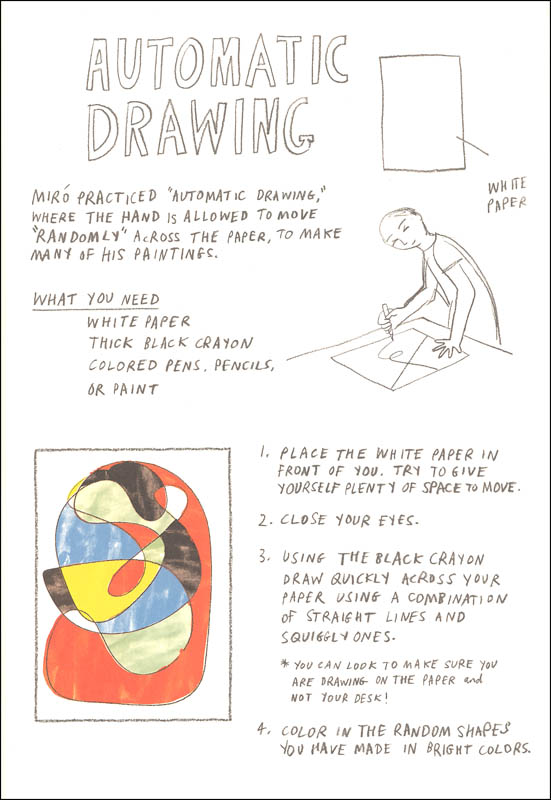 AUTOMATIC
DRAWING
WHITE
PAPER
MIRÓ PRACTICED "AUTOMATIC DRAWING,"
WHERE THE HAND IS ALLOWED TO MOVE
"RANDOMLY" ACROSS THE PAPER, TO MAKE
MANY OF HIS PAINTINGS.
WHAT YOU NEED
WHITE PAPER
THICK BLACK CRAYON
COLORED PENS, PENCILS,
OR PAINT
1. PLACE THE WHITE PAPER IN
FRONT OF YOU. TRY TO GIVE
YOURSELF PLENTY OF SPACE TO MOVE.
2. CLOSE YOUR EYES.
3. USING THE BLACK CRAYON
DRAW QUICKLY ACROSS YOUR
PAPER USING A COMBINATION
OF STRAIGHT LINES AND
SQUIGGLY ONES.
* YOU CAN LOOK TO MAKE SURE YOU
ARE DRAWING ON THE PAPER and
NOT YOUR DESK!
4. COLOR IN THE RANDOM SHAPES
YOU HAVE MADE IN BRIGHT COLORS.